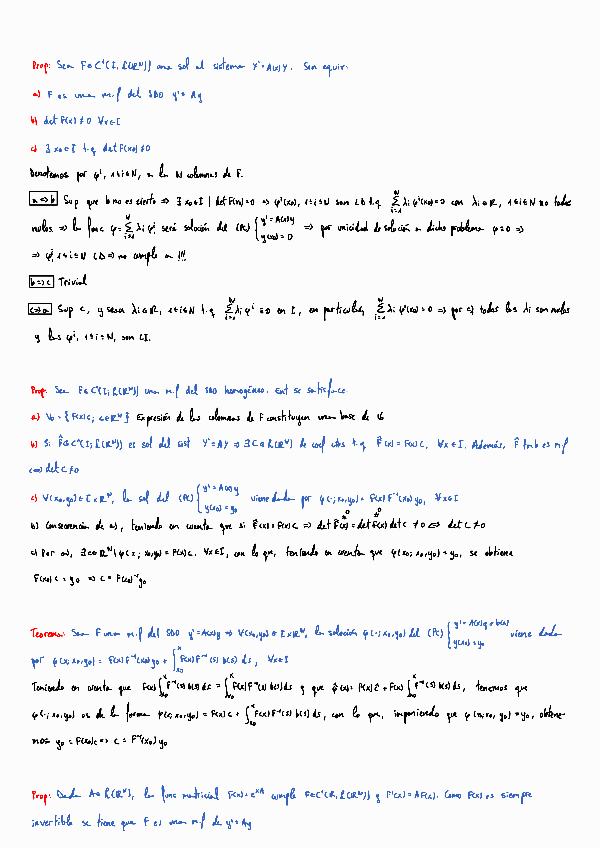 Prop: Sea F∈C¹(I, L(ℝᴺ)) una sol al sistema Y'=A(x)Y. Son equiv:
a) F es una m.f del SDO y'=Ay
b) det F(x)≠0 ∀x∈I
c) ∃ x₀∈I t.q det F(x₀)≠0
Denotemos por φⁱ, 1≤i≤N, a las N columnas de F.
a⇒b Sup que b no es cierto ⇒ ∃ x₀∈I | det F(x₀)=0 ⇒ φⁱ(x₀), 1≤i≤N son LD t.q Σᵢ₌₁ᴺ λi φⁱ(x₀)=0 con λi∈ℝ, 1≤i≤N no todos
nulos ⇒ la func φ=Σᵢ₌₁ᴺ λi φⁱ será solución del (PC) { y'=A(x)y y(x₀)=0 ⇒ por unicidad de solución a dicho problema φ≡0 ⇒
⇒ φⁱ, 1≤i≤N LD ⇒ no cumple a !!!
b⇒c Trivial
c⇒a Sup c, y sean λi∈ℝ, 1≤i≤N t.q Σᵢ₌₁ᴺ λi φⁱ≡0 en I, en particular, Σᵢ₌₁ᴺ λi φⁱ(x₀)=0 ⇒ por c) todos los λi son nulos
y las φⁱ, 1≤i≤N, son LI.
Prop: Sea F∈C¹(I; L(ℝᴺ)) una m.f del SDO homogéneo. Ent se satisface
a) V₀={F(x)c; c∈ℝᴺ} Expresión de las columnas de F constituyen una base de V₀
b) Si F̂∈C¹(I; L(ℝᴺ)) es sol del sist Y'=AY ⇒ ∃ C∈L(ℝᴺ) de coef ctes t.q F̂(x)=F(x)C, ∀x∈I. Además, F̂ tmb es m.f
⇔ det C≠0
c) ∀(x₀,y₀)∈I×ℝᴺ, la sol del (PC) { y'=A(x)y y(x₀)=y₀ viene dada por φ(·; x₀,y₀)=F(x)F⁻¹(x₀)y₀, ∀x∈I
b) Consecuencia de a), teniendo en cuenta que si F̂(x)=F(x)C ⇒ det F̂(x)=det F(x) det C ≠0 ⇔ det C≠0
c) Por a), ∃ c∈ℝᴺ | φ(x; x₀,y₀)=F(x)c. ∀x∈I, con lo que, teniendo en cuenta que φ(x₀; x₀,y₀)=y₀, se obtiene
F(x₀)c=y₀ ⇒ c=F(x₀)⁻¹y₀
Teorema: Sea F una m.f del SDO y'=A(x)y ⇒ ∀(x₀,y₀)∈I×ℝᴺ, la solución φ(·; x₀,y₀) del (PC) { y'=A(x)y+b(x) y(x₀)=y₀ viene dada
por φ(x; x₀,y₀)=F(x)F⁻¹(x₀)y₀+∫ₓ₀ˣ F(x)F⁻¹(s)b(s)ds, ∀x∈I
Teniendo en cuenta que F(x)∫ₓ₀ˣ F⁻¹(s)b(s)ds=∫ₓ₀ˣ F(x)F⁻¹(s)b(s)ds y que φ(x)=F(x)c+F(x)∫ₓ₀ˣ F⁻¹(s)b(s)ds, tenemos que
φ(·; x₀,y₀) es de la forma φ(x; x₀,y₀)=F(x)c+∫ₓ₀ˣ F(x)F⁻¹(s)b(s)ds, con lo que, imponiendo que φ(x₀; x₀,y₀)=y₀, obtene-
mos y₀=F(x₀)c ⇒ c=F⁻¹(x₀)y₀
Prop: Dada A∈L(ℝᴺ), la func matricial F(x)=eˣᴬ cumple F∈C¹(ℝ, L(ℝᴺ)) y F'(x)=AF(x). Como F(x) es siempre
invertible se tiene que F es una m.f de y'=Ay